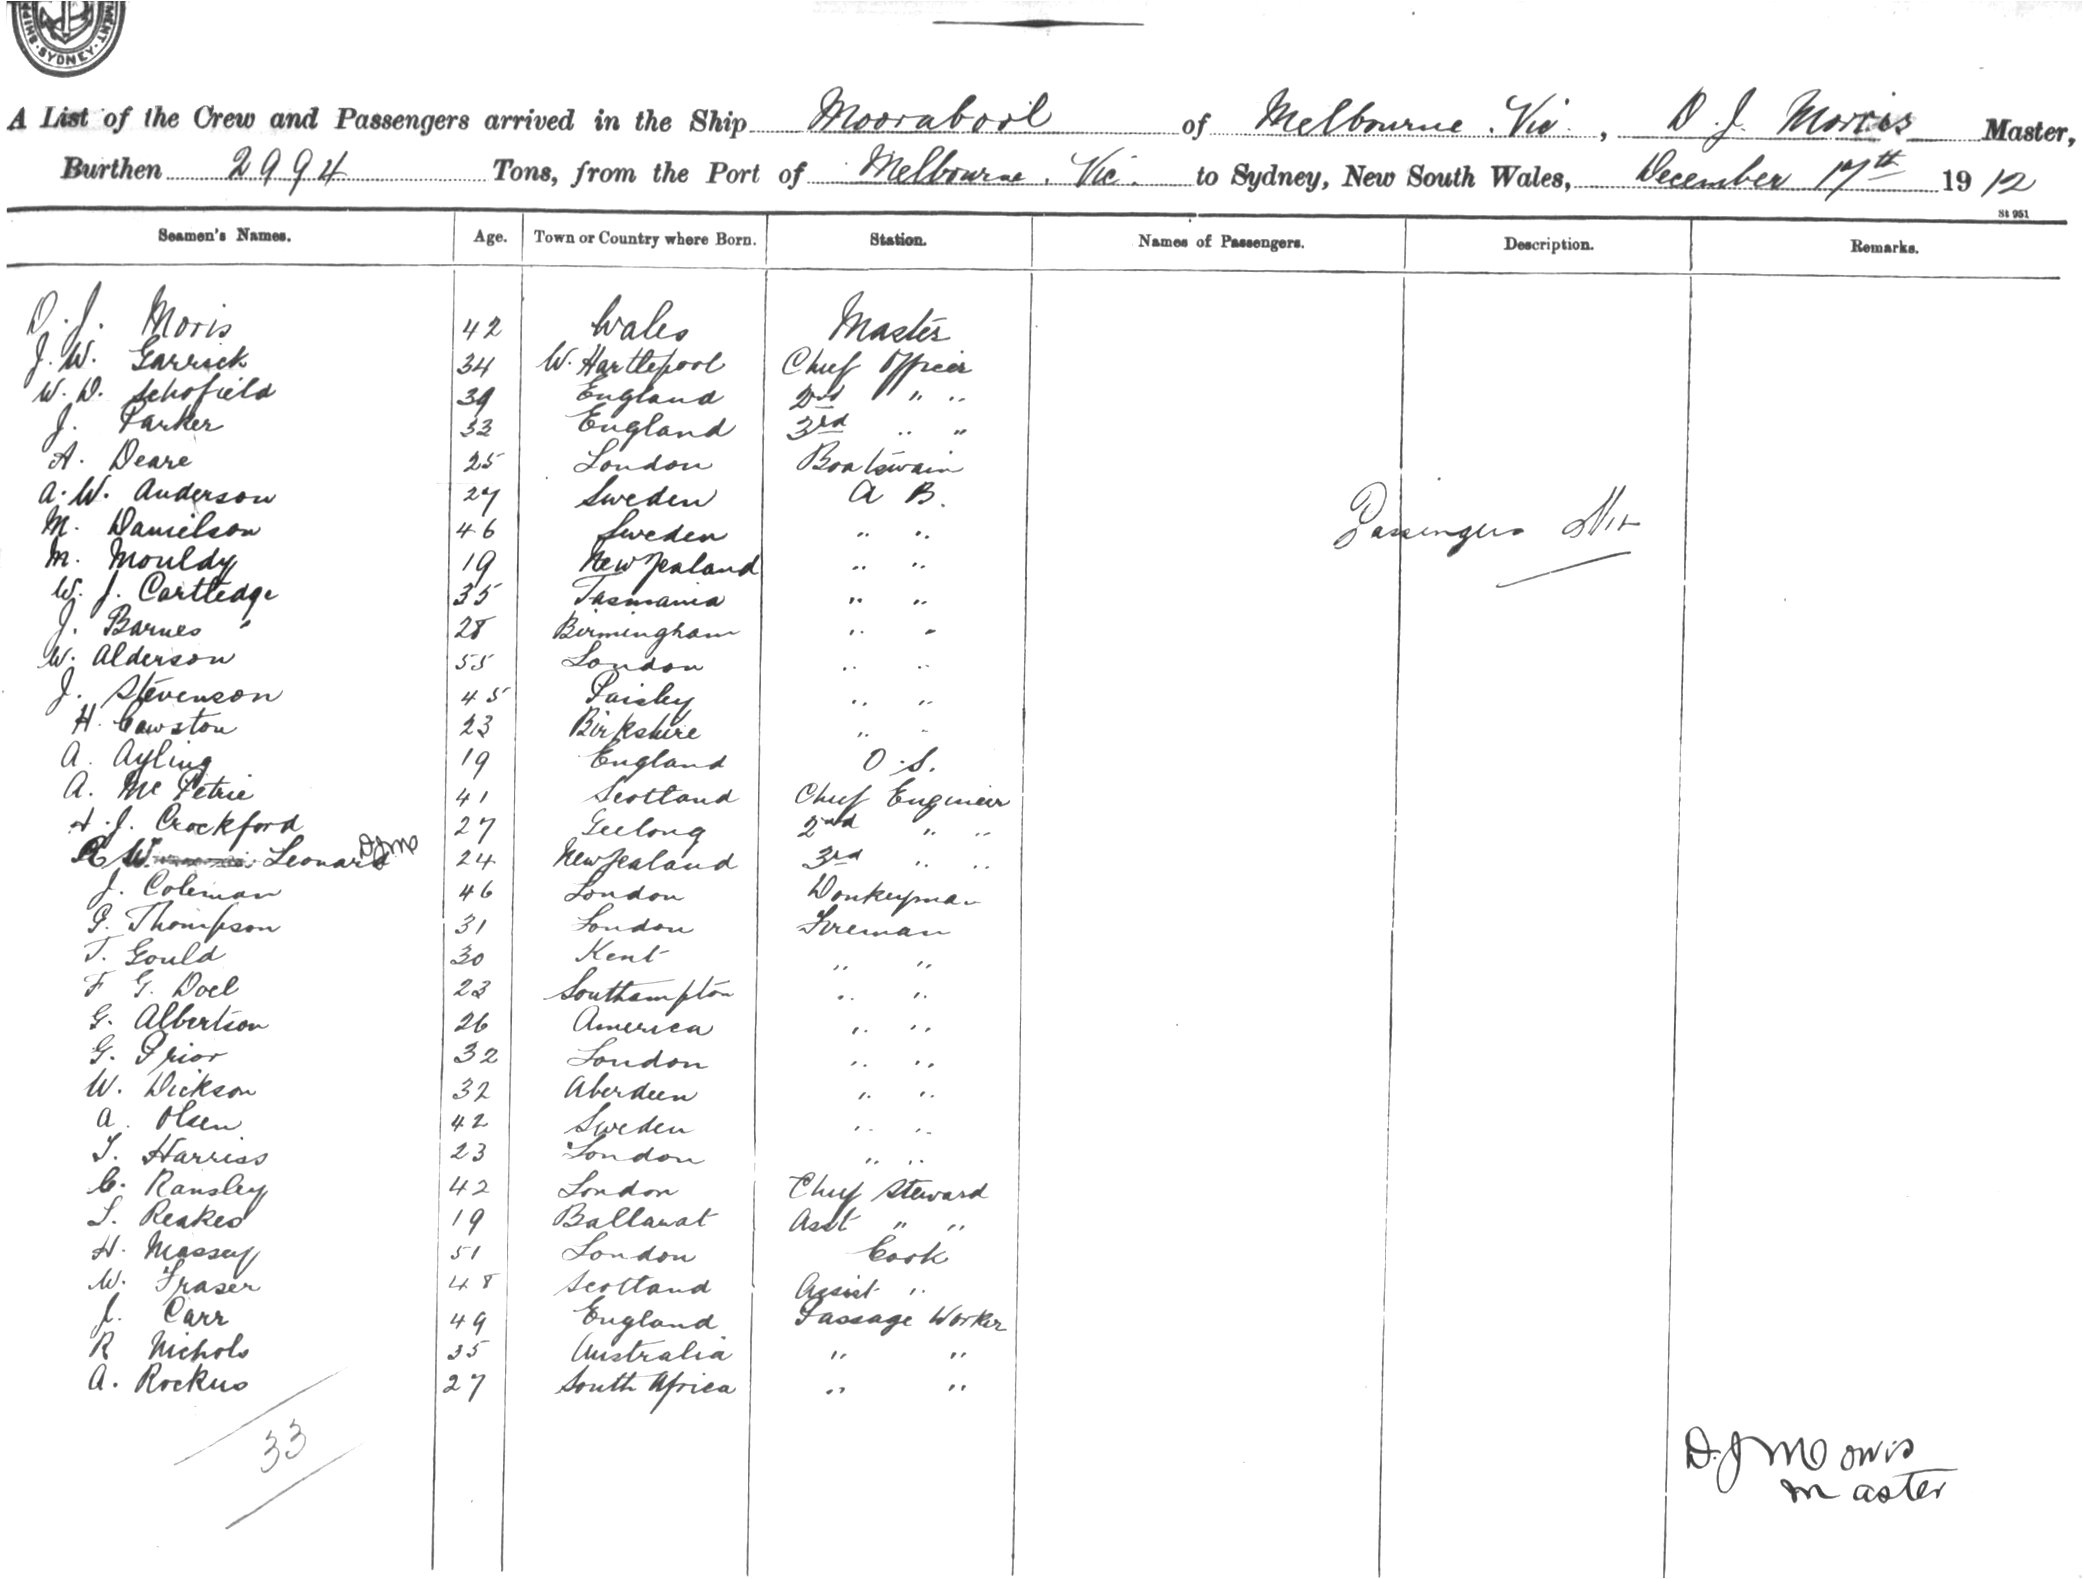 SYDNEY
A List of the Crew and Passengers arrived in the Ship Moorabool of Melbourne. Vic., D. J. Morris Master,
Burthen 2994 Tons, from the Port of Melbourne. Vic. to Sydney, New South Wales, December 17th 1912
St 951
Seamen's Names. Age. Town or Country where Born. Station. Names of Passengers. Description. Remarks.
D. J. Moris 42 Wales Master
J. W. Garrick 34 W. Hartlepool Chief Officer
W. D. Schofield 39 England 2nd " "
J. Parker 33 England 3rd " "
A. Deare 25 London Boatswain
A. W. Anderson 27 Sweden A B.
M. Danielson 46 Sweden " "
M. Mouldy 19 New Zealand " "
W. J. Cartledge 35 Tasmania " "
J. Barnes 28 Birmingham " "
W. Alderson 55 London " "
J. Stevenson 45 Paisley " "
H. Cawston 23 Birkshire " "
A. Ayling 19 England O.S.
A. Mc Petrie 41 Scotland Chief Engineer
H. J. Crockford 27 Geelong 2nd " "
R W. Leonard DJM 24 New Zealand 3rd " "
J. Coleman 46 London Donkeyman
G. Thompson 31 London Fireman
T. Gould 30 Kent " "
F G. Doel 23 Southampton " "
G. Albertson 26 America " "
G. Prior 32 London " "
W. Dickson 32 Aberdeen " "
A. Olsen 42 Sweden " "
T. Harriss 23 London " "
C. Ransley 42 London Chief Steward
S. Reakes 19 Ballarat Asst " "
H. Massey 51 London Cook
W. Fraser 48 Scotland Assist "
J. Carr 49 England Passage Worker
R Nichols 35 Australia " "
A. Rockus 27 South Africa " "
Passengers Nil
33
D. J Morris
Master